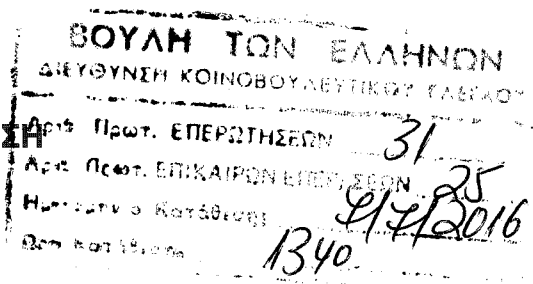 ΒΟΥΛΗ ΤΩΝ ΕΛΛΗΝΩΝ
ΔΙΕΥΘΥΝΣΗ ΚΟΙΝΟΒΟΥΛΕΥΤΙΚΟΥ ΕΛΕΓΧΟΥ
ΣΗ
Αριθ. Πρωτ. ΕΠΕΡΩΤΗΣΕΩΝ 31
Αριθ. Πρωτ. ΕΠΙΚΑΙΡΩΝ ΕΠΕΡ/ΣΕΩΝ 25
Ημερομηνία Κατάθεσης 2016
Ώρα Κατάθεσης 1340